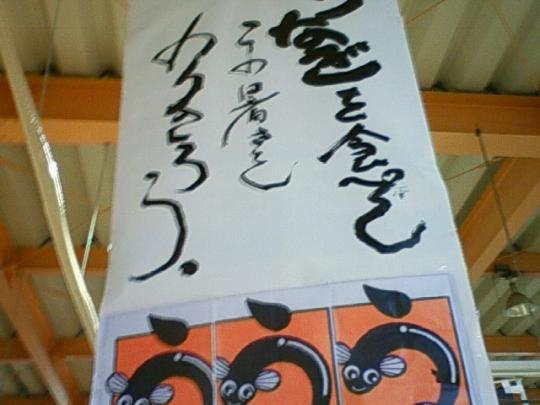 うなぎを食べて
この暑さを
のりきろう。
う う う